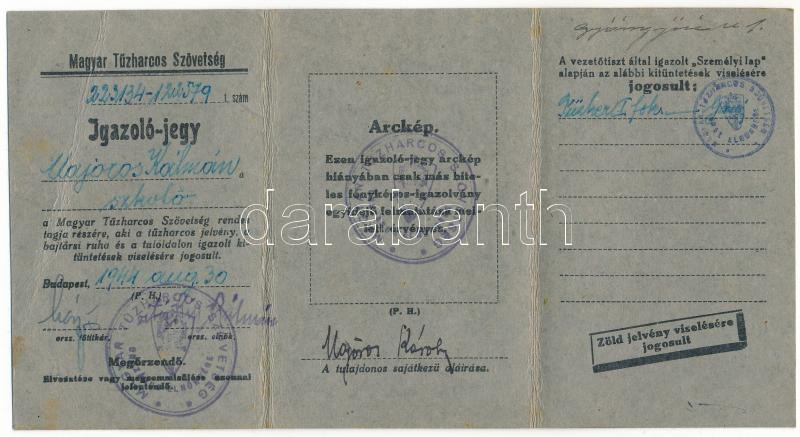 Magyar Tűzharcos Szövetség
223134-122579 t. szám
Igazoló-jegy
Majoros Kálmán
a Magyar Tűzharcos Szövetség rendes
tagja részére, aki a tűzharcos jelvény,
bajtársi ruha és a túloldalon igazolt ki-
tüntetések viselésére jogosult.
Budapest, 1944 aug. 30
(P. H.)
orsz. főtitkár. orsz. elnök.
Megőrzendő.
Elvesztése vagy megsemmisülése azonnal
jelentendő.
Arckép.
Ezen igazoló-jegy arckép
hiányában csak más hite-
les fényképes-igazolvány
egyidejű felmutatása mel-
lett érvényes.
(P. H.)
Majoros
A tulajdonos sajátkezű aláírása.
A vezetőtiszt által igazolt „Személyi lap"
alapján az alábbi kitüntetések viselésére
jogosult:
Zöld jelvény viselésére
jogosult
darabanth